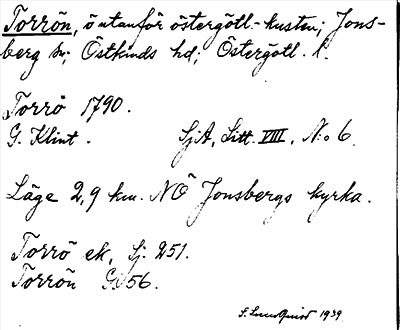 Torrön, ö utanför östergötl.-kusten; Jons-
berg sn; Östkinds hd; Östergötl. l.
Torrö 1790.
G. Klint. SjA, Litt. VIII, N:o 6.
Läge 2,9 km. NÖ Jonsbergs kyrka.
Torrö ek, Sj. 251.
Torrön GS 56.
S. 1939